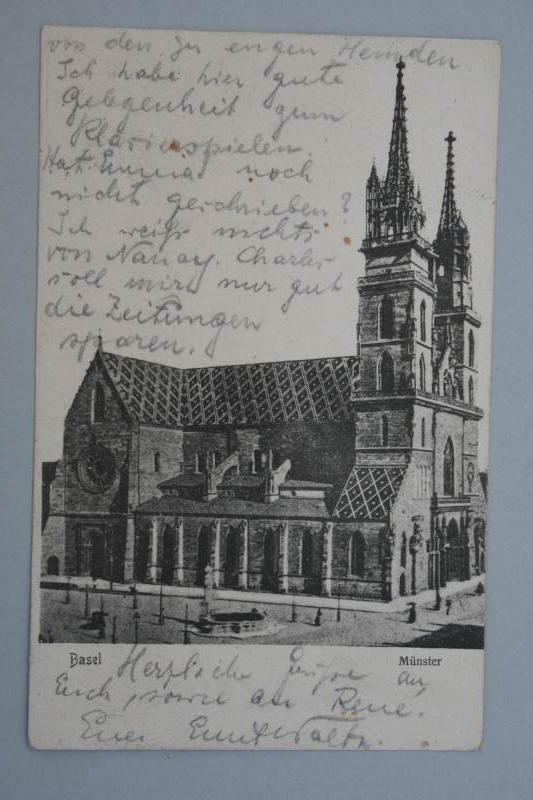 von den zu engen Hemden
Ich habe hier gute
Gelegenheit zum
Klavierspielen.
Hat Emma noch
nicht geschrieben?
Ich weiss nichts
von Nancy. Charles
soll mir nur gut
die Zeitungen
sparen.
Basel
Münster
Herzliche Grüsse an
Euch, sowie an René.
Euer